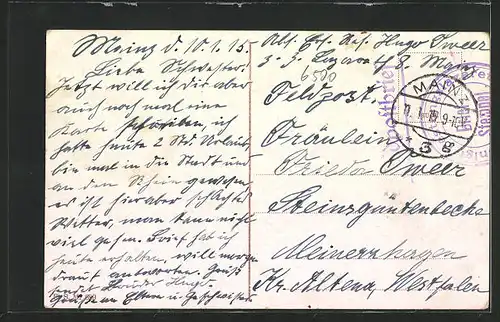 Mainz d. 10.1.15.
Liebe Schwester!
Jetzt will ich dir aber
auch noch mal eine
Karte schreiben, ich
hatte heute 2 Std. Urlaub,
bin mal in die Stadt und
an den Rhein gewesen,
es ist hier aber schlechtes
Wetter, man kann nicht
viel gehen. Brief hab ich
heute erhalten, will morgen
drauf antworten. Gruß
sendet Bruder Hugo.
Grüße an Eltern u. Geschwister.
Abs. Ers. Res. Hugo Tweer
Lazarett 8 Mainz
6500
Feldpost.
Fräulein
Frieda Tweer
Steinsgüntenbecke
Meinerzhagen
Kr. Altena, Westfalen
MAINZ
3